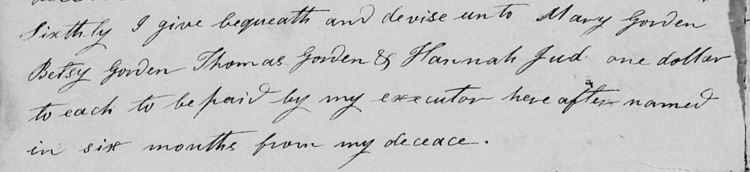 Sixthly I give bequeath and devise unto Mary Gorden
Betsy Gorden Thomas Gorden & Hannah Jud one dollar
to each to be paid by my executor hereafter named
in six months from my deceace.